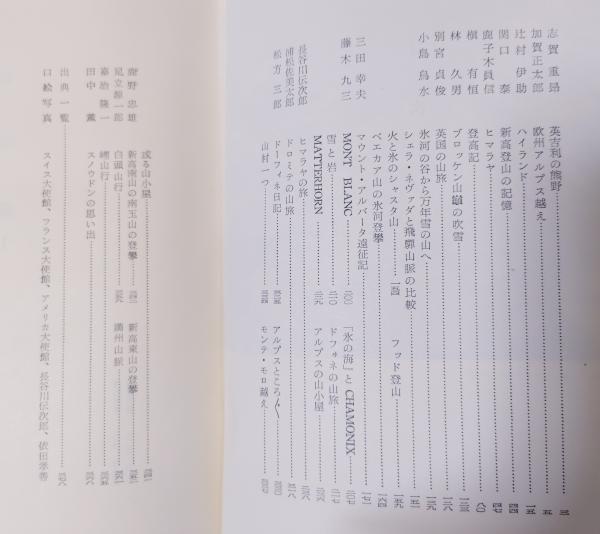 志賀重昂 英吉利の熊野 三
加賀正太郎 欧州アルプス越え 五
辻村伊助 ハイランド 一五
関口泰 新高登山の記憶 四四
鹿子木員信 ヒマラヤ 四七
槇有恒 登高記 八〇
林久男 ブロッケン山巓の吹雪 一二三
別宮貞俊 英国の山旅 一二六
小島烏水 氷河の谷から万年雪の山へ 一三九
シェラ・ネヴァダと飛騨山脈の比較 一五一
火と氷のシャスタ山 一五四 フッド登山 一五九
ベエカア山の氷河登攀 一六四
三田幸夫 マウント・アルバータ遠征記 一七一
藤木九三 MONT BLANC 二〇〇 「氷の海」と CHAMONIX 二〇七
雪と岩 二一〇 ドフォネの山旅
MATTERHORN 二一九 アルプスの山小屋
長谷川伝次郎 ヒマラヤの旅
浦松佐美太郎 ドロミテの山旅
松方三郎 ドーフィネ日記 アルプスところ〴〵
山村一つ モンテ・モロ越え
鹿野忠雄 或る山小屋
新高南山の南玉山の登攀 新高東山の登攀
足立源一郎 白頭山行 満州山脈
嘉治隆一 山行
田中薫 スノウドンの思い出
出典一覧
口絵写真 スイス大使館、フランス大使館、アメリカ大使館、長谷川伝次郎、依田孝喜